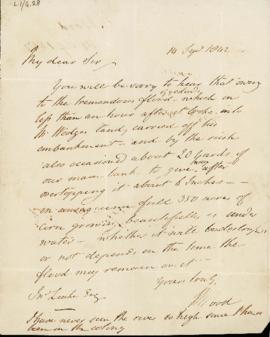 L1/4.28
14 Sept 1842
My dear Sir,
You will be sorry to hear that owing
to the tremendous flood yesterday which in
less than an hour after it broke into
Mr Wedges land, carried off his
embankment, and by the rush
also occasioned about 20 yards of
our main bank to give, after
overtopping it about 6 Inches —
in consequence full 350 acres of
corn growing beautifully is under
water — whether it will be destroyed
or not depends on the time the
flood may remain on it —
Yours truly,
Wood
Jno Leake Esq
I have never seen the river so high since I have
been in the colony